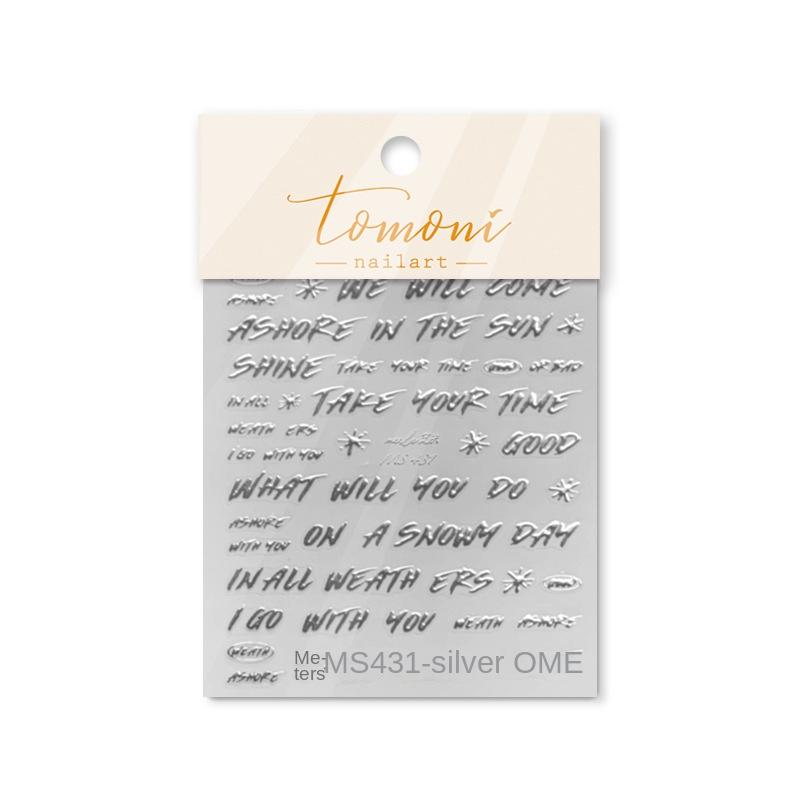 tomoni
nailart
ASHORE WE WILL COME
ASHORE IN THE SUN
SHINE TAKE YOUR TIME OR BAD
IN ALL TAKE YOUR TIME
WEATH ERS
I GO WITH YOU GOOD
MS-431
WHAT WILL YOU DO
ASHORE
WITH YOU ON A SNOWY DAY
IN ALL WEATH ERS
I GO WITH YOU WEATH ASHORE
WEATH
ASHORE
Me-
ters
MS431-silver OME